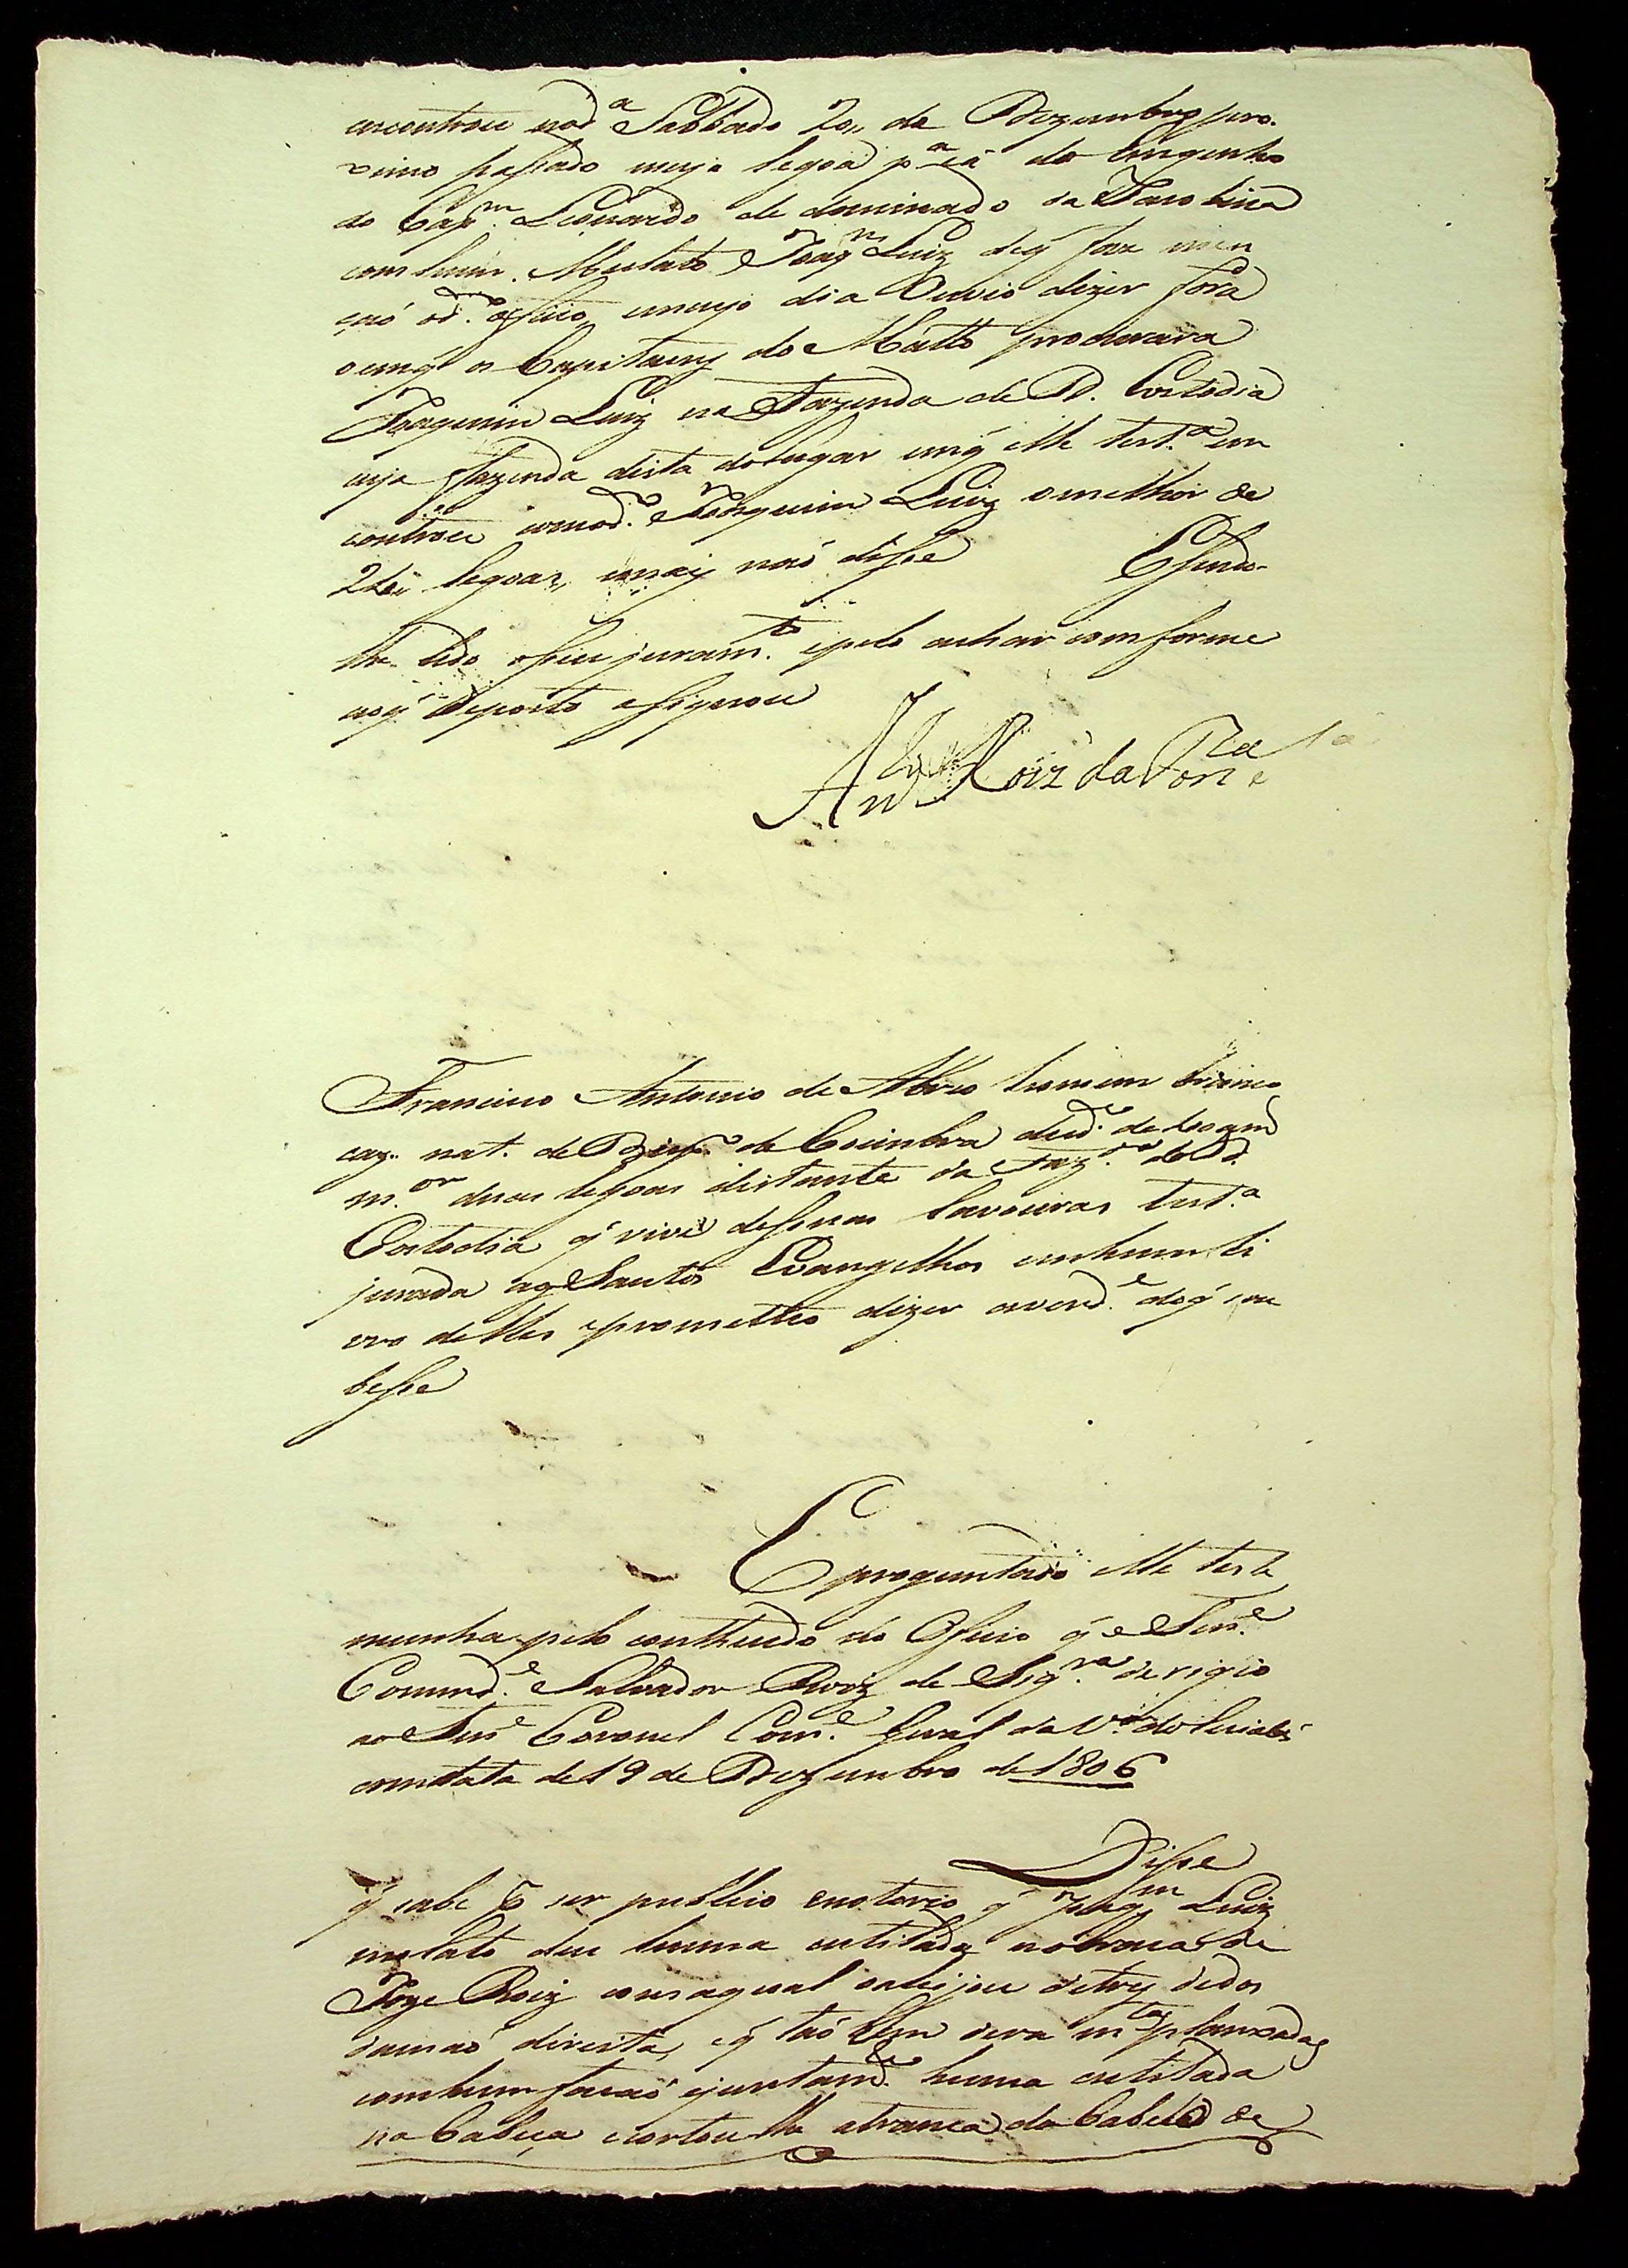 encontrou nod.ª Sabbado 20,, de Dezembro pro.
ximo pasſado meya legoa p.ª cá do Emgenho
do Cap.m Leonardo de dominado da Faro
com hum Mulato Joaq.m Luiz deq̃ faz men
çaó od.º oficio, emcujo dia Ouvio dizer fora
oemq̃ os Capitaens do Matto procurara
Joaquim Luiz na Fazenda de D. Costodia
cuja fazenda dista do lugar emq̃ elle test.ª em
controu comod.º Joaquim Luiz omelhor de
2 legoas, emais naó disse Esendo
lhe lido oseu juram.to epelo achar comforme
aoq̃ deposto asignou
An.to Roiz da Fon.ca
Francisco Antonio de Abreo homem branco
caz. nat. de de Coimbra de
m.or duas legoas distante da Faz.da de D.
Costodia q̃ vive desuas lavouras test.ª
jurada aos Santos Evangelhos emhum li
vro delles eprometteo dizer averd.e doq̃ sou
besse
E proguntado elle teste
munha pelo conttheudo do Oficio q̃ o Ten.e
Comand.e Salvador Roiz de Siq.ra derigio
ao Ten.e Coronel Com.e Geral da V.ª do Cuiabá
comdata de 19 de Dezembro de 1806
Disse
q̃ sabe p ser publico enotorio q̃ Joaq.m Luiz
mulato deu huma cutilada nobraço de
Joze Roiz comaqual aleijou detres dedos
damaó direita, eq̃ taó bem dera m.tas planxadas
comhum facaó ejuntam.e huma cutilada
na Cabeça ecortou lhe atranca do Cabelo de